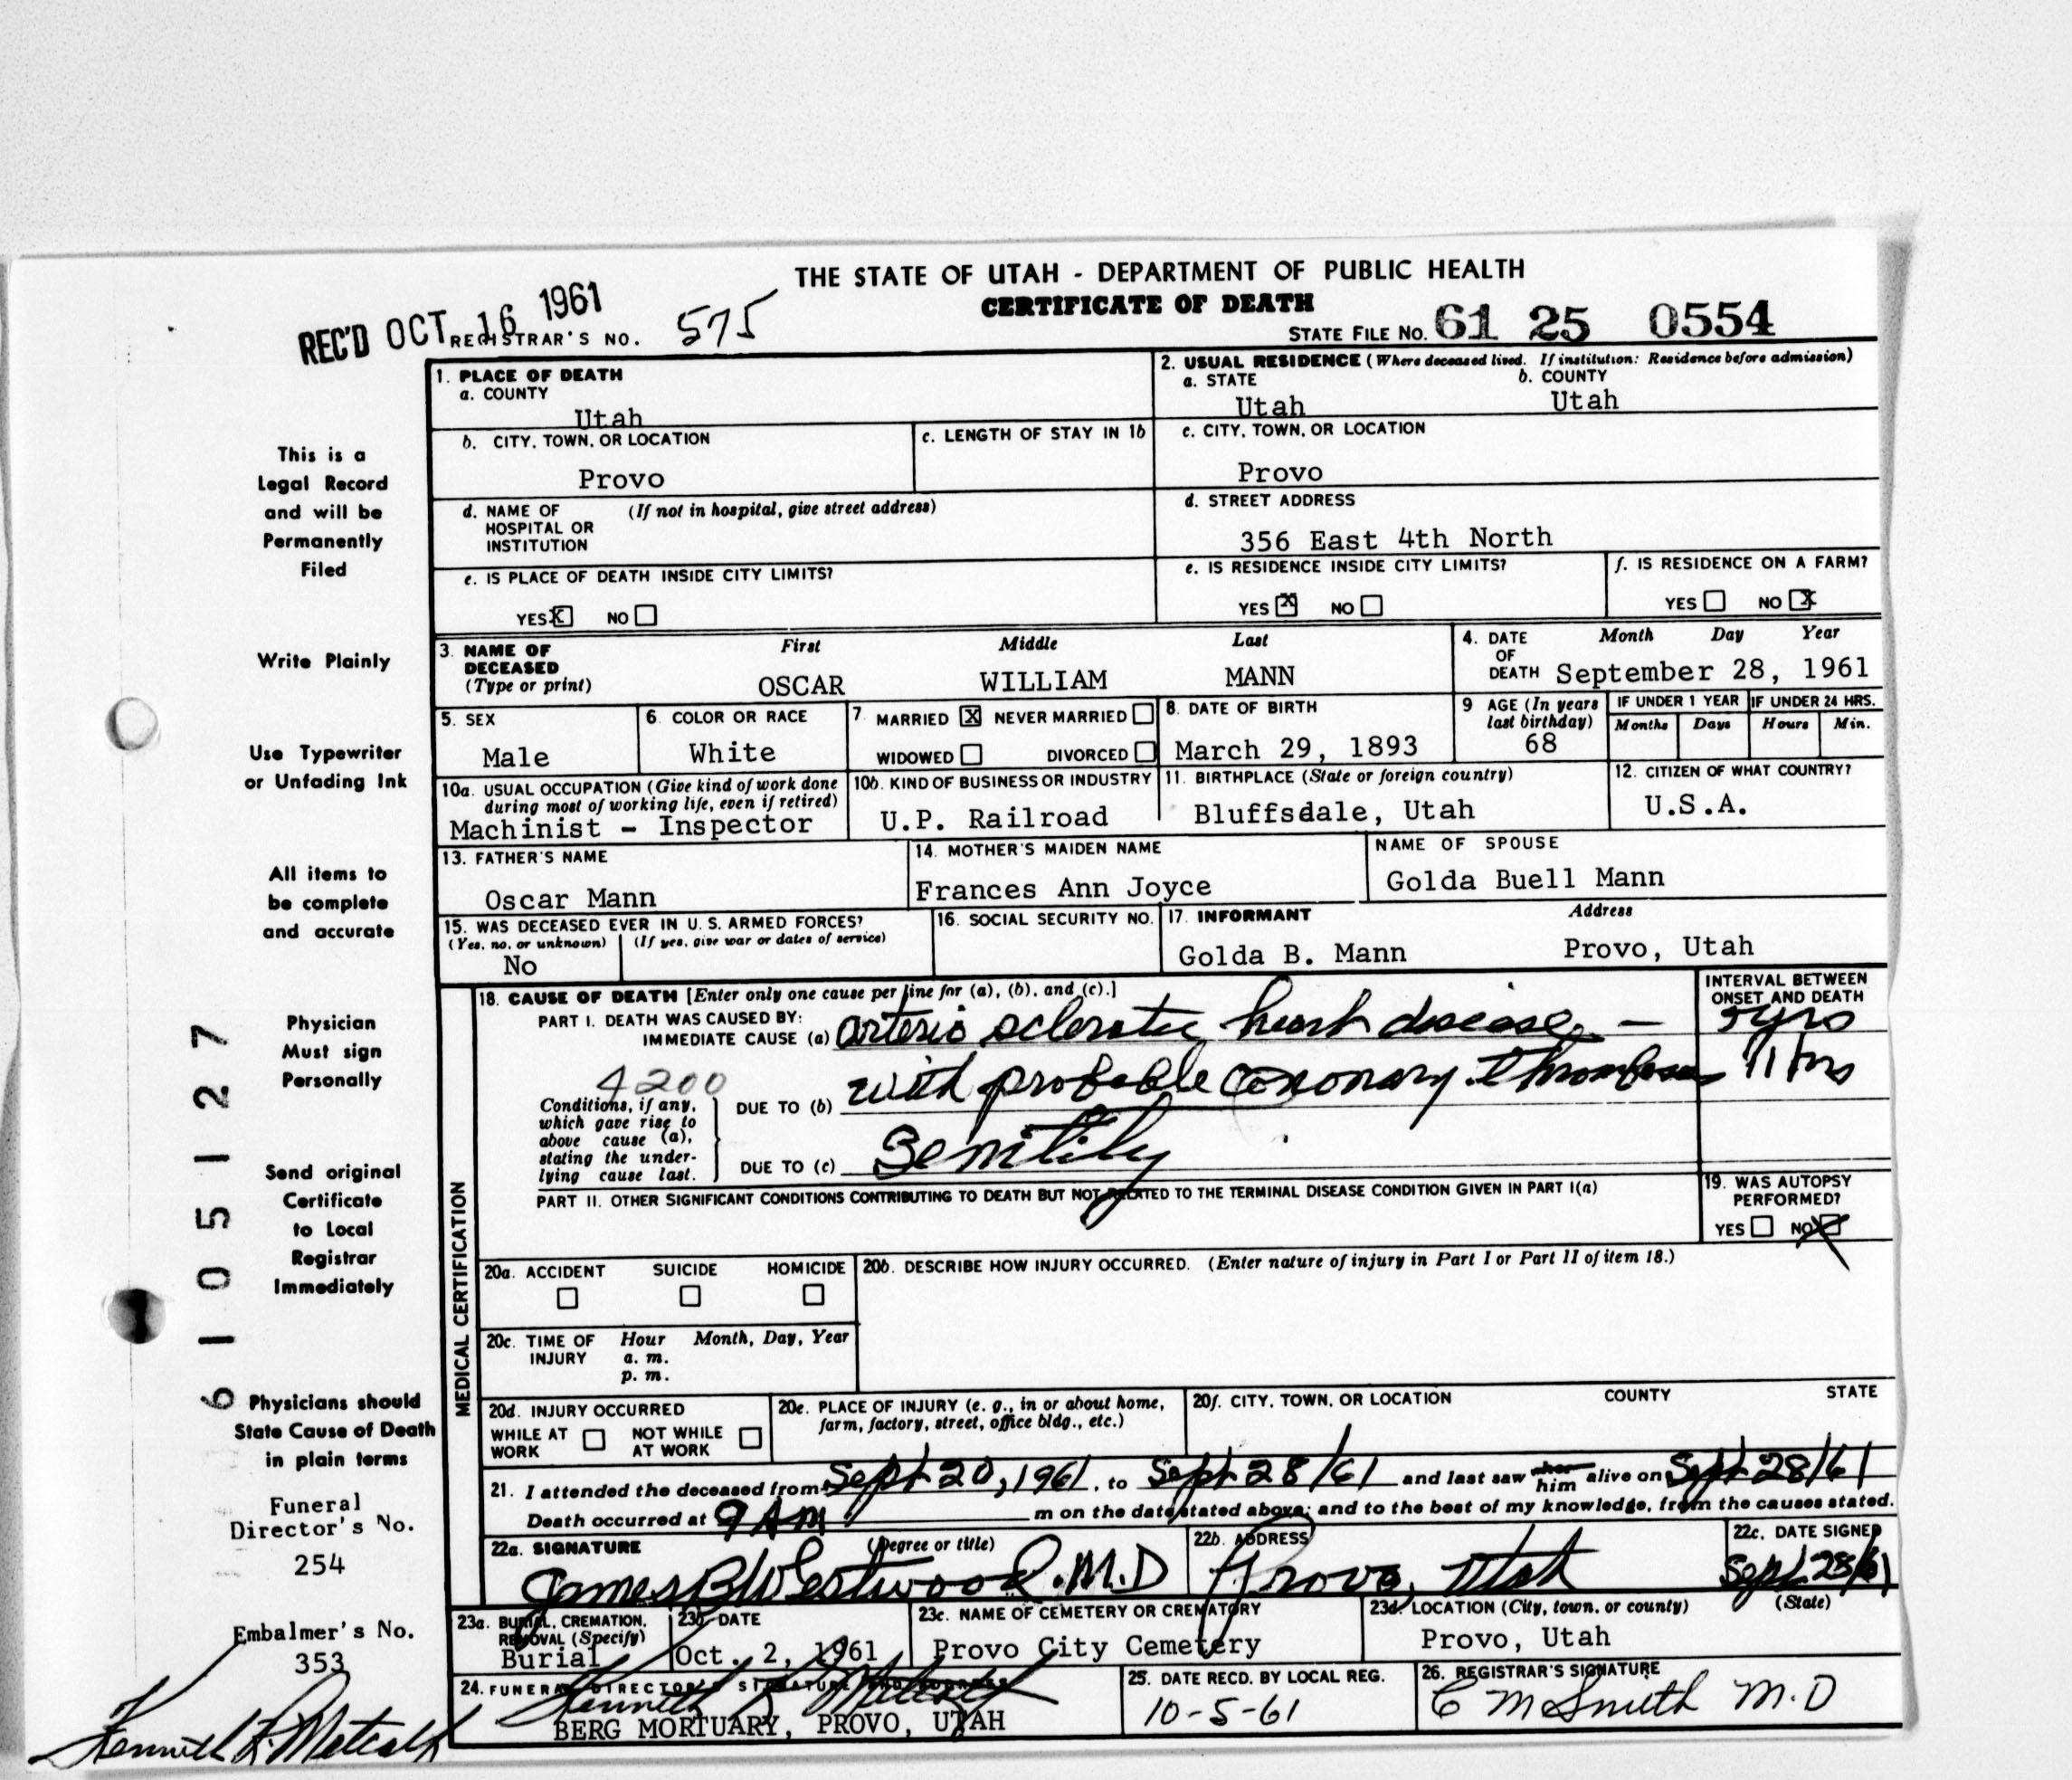 THE STATE OF UTAH - DEPARTMENT OF PUBLIC HEALTH
CERTIFICATE OF DEATH
REC'D OCT 16 1961
REGISTRAR'S NO. 575
STATE FILE NO. 61 25 0554
1. PLACE OF DEATH
a. COUNTY
Utah
2. USUAL RESIDENCE (Where deceased lived. If institution: Residence before admission)
a. STATE b. COUNTY
Utah Utah
b. CITY, TOWN, OR LOCATION
Provo
c. LENGTH OF STAY IN 1b
c. CITY, TOWN, OR LOCATION
Provo
d. NAME OF (If not in hospital, give street address)
HOSPITAL OR
INSTITUTION
d. STREET ADDRESS
356 East 4th North
e. IS PLACE OF DEATH INSIDE CITY LIMITS?
YES X NO
e. IS RESIDENCE INSIDE CITY LIMITS?
YES X NO
f. IS RESIDENCE ON A FARM?
YES NO X
3. NAME OF
DECEASED
(Type or print)
First Middle Last
OSCAR WILLIAM MANN
4. DATE
OF
DEATH
Month Day Year
September 28, 1961
5. SEX
Male
6. COLOR OR RACE
White
7. MARRIED X NEVER MARRIED
WIDOWED DIVORCED
8. DATE OF BIRTH
March 29, 1893
9 AGE (In years
last birthday)
68
IF UNDER 1 YEAR
Months Days
IF UNDER 24 HRS.
Hours Min.
10a. USUAL OCCUPATION (Give kind of work done
during most of working life, even if retired)
Machinist - Inspector
10b. KIND OF BUSINESS OR INDUSTRY
U.P. Railroad
11. BIRTHPLACE (State or foreign country)
Bluffsdale, Utah
12. CITIZEN OF WHAT COUNTRY?
U.S.A.
13. FATHER'S NAME
Oscar Mann
14. MOTHER'S MAIDEN NAME
Frances Ann Joyce
NAME OF SPOUSE
Golda Buell Mann
15. WAS DECEASED EVER IN U. S. ARMED FORCES?
(Yes, no, or unknown) (If yes, give war or dates of service)
No
16. SOCIAL SECURITY NO.
17. INFORMANT Address
Golda B. Mann Provo, Utah
MEDICAL CERTIFICATION
18. CAUSE OF DEATH [Enter only one cause per line for (a), (b), and (c).]
INTERVAL BETWEEN
ONSET AND DEATH
PART I. DEATH WAS CAUSED BY:
IMMEDIATE CAUSE (a) arterio sclerotic heart disease - 5yrs
4200
DUE TO (b) with probable coronary thrombosis
Conditions, if any,
which gave rise to
above cause (a),
stating the under-
lying cause last.
DUE TO (c) Senility
PART II. OTHER SIGNIFICANT CONDITIONS CONTRIBUTING TO DEATH BUT NOT RELATED TO THE TERMINAL DISEASE CONDITION GIVEN IN PART I(a)
19. WAS AUTOPSY
PERFORMED?
YES NO X
20a. ACCIDENT SUICIDE HOMICIDE
20b. DESCRIBE HOW INJURY OCCURRED. (Enter nature of injury in Part I or Part II of item 18.)
20c. TIME OF
INJURY
Hour Month, Day, Year
a. m.
p. m.
20d. INJURY OCCURRED
WHILE AT
WORK
NOT WHILE
AT WORK
20e. PLACE OF INJURY (e. g., in or about home,
farm, factory, street, office bldg., etc.)
20f. CITY, TOWN, OR LOCATION COUNTY STATE
21. I attended the deceased from Sept 20, 1961, to Sept 28/61 and last saw her him alive on Sept 28/61
Death occurred at 9 AM m on the date stated above; and to the best of my knowledge, from the causes stated.
22a. SIGNATURE (Degree or title)
James B Westwood. M.D
22b. ADDRESS
Provo, Utah
22c. DATE SIGNED
Sept 28/61
23a. BURIAL, CREMATION,
REMOVAL (Specify)
Burial
23b. DATE
Oct. 2, 1961
23c. NAME OF CEMETERY OR CREMATORY
Provo City Cemetery
23d. LOCATION (City, town, or county) (State)
Provo, Utah
24. FUNERAL DIRECTOR'S SIGNATURE AND ADDRESS
Kenneth R Metcalf
BERG MORTUARY, PROVO, UTAH
25. DATE RECD. BY LOCAL REG.
10-5-61
26. REGISTRAR'S SIGNATURE
C M Smith M.D
This is a
Legal Record
and will be
Permanently
Filed
Write Plainly
Use Typewriter
or Unfading Ink
All items to
be complete
and accurate
Physician
Must sign
Personally
Send original
Certificate
to Local
Registrar
Immediately
Physicians should
State Cause of Death
in plain terms
Funeral
Director's No.
254
Embalmer's No.
353
Kenneth R Metcalf
6105127